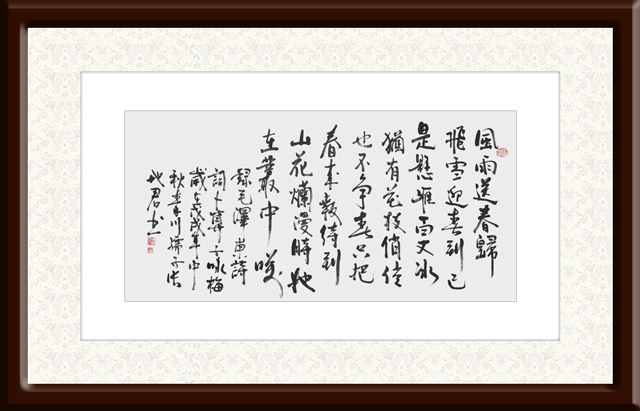 風雨送春歸
飛雪迎春到已
是懸崖百丈冰
猶有花枝俏俏
也不爭春只把
春來報待到
山花爛漫時她
在叢中咲
錄毛澤東詩
詞卜算子咏梅
歲在戊戌年中
秋
君书